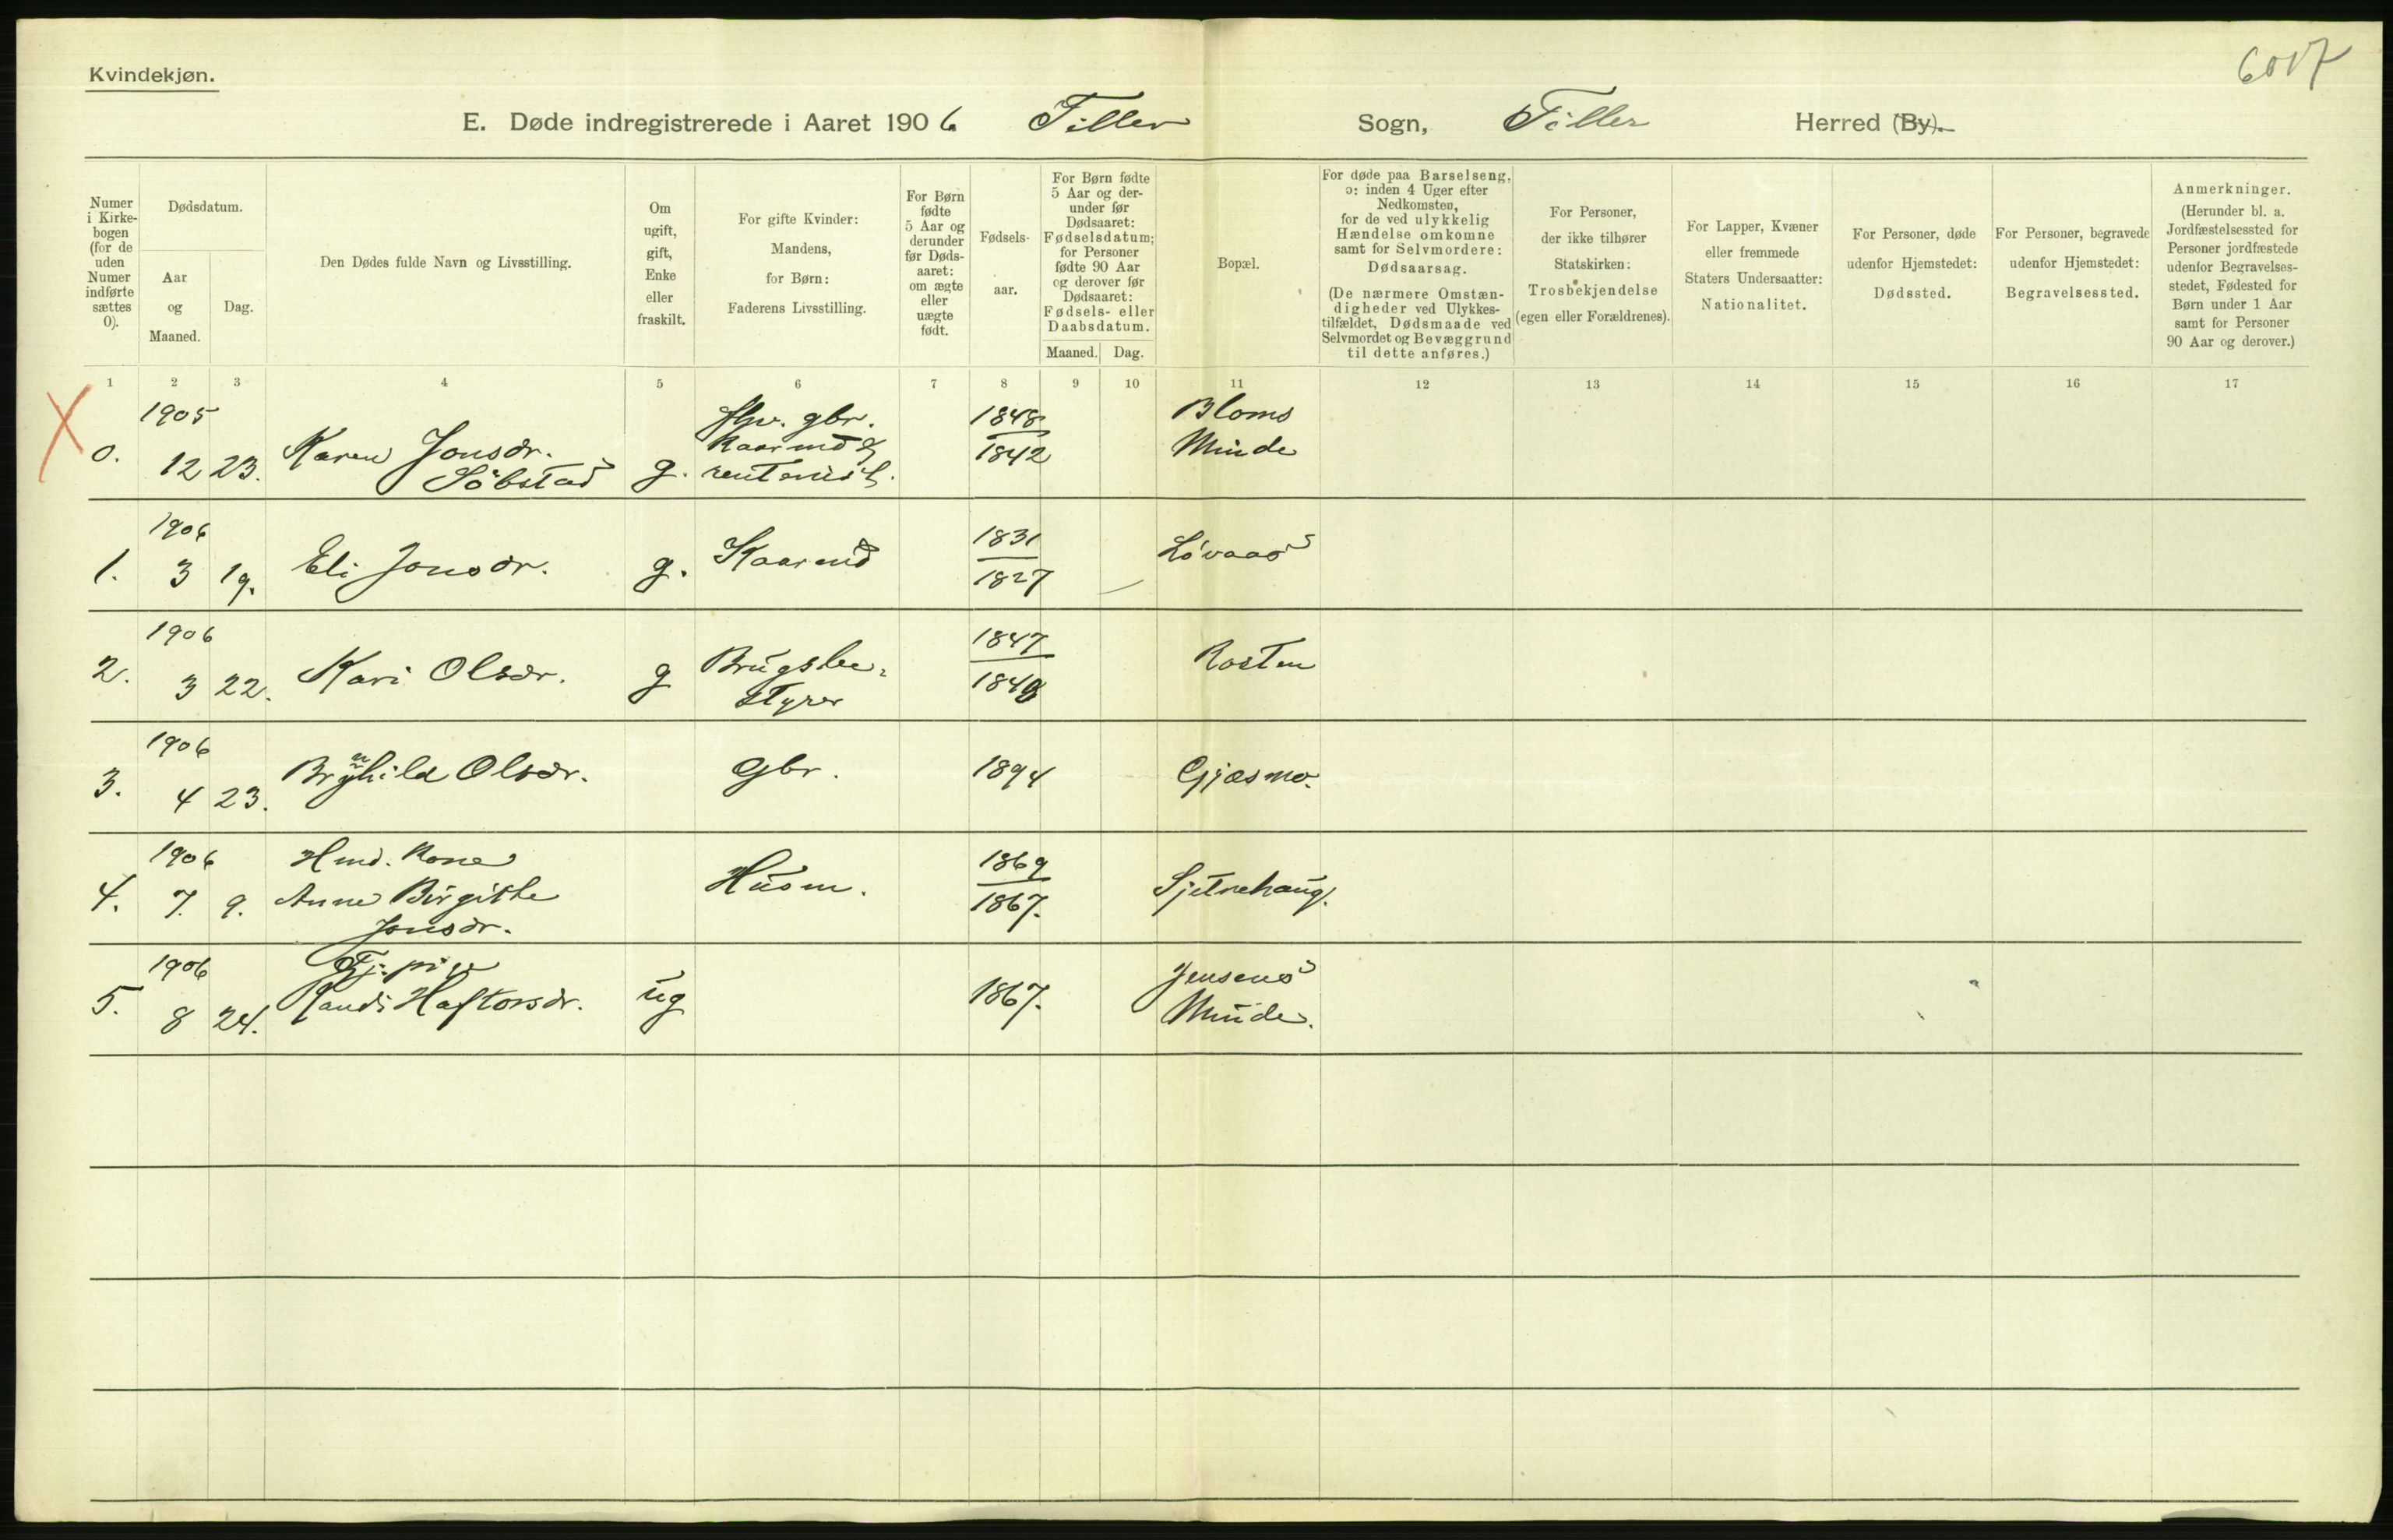 Kvindekjøn.
6017
E. Døde indregistrerede i Aaret 1906 Tiller Sogn, Tiller Herred (By).
Numer
i Kirke-
bogen
(for de
uden
Numer
indførte
sættes
0).
Dødsdatum.
Aar
og
Maaned.
Dag.
Den Dødes fulde Navn og Livsstilling.
Om
ugift,
gift,
Enke
eller
fraskilt.
For gifte Kvinder:
Mandens,
for Børn:
Faderens Livsstilling.
For Børn
fødte
5 Aar og
derunder
før Døds-
aaret:
om ægte
eller
uægte
født.
Fødsels-
aar.
For Børn fødte
5 Aar og der-
under før
Dødsaaret:
Fødselsdatum;
for Personer
fødte 90 Aar
og derover før
Dødsaaret:
Fødsels- eller
Daabsdatum.
Maaned. Dag.
Bopæl.
For døde paa Barselseng,
ɔ: inden 4 Uger efter
Nedkomsten,
for de ved ulykkelig
Hændelse omkomne
samt for Selvmordere:
Dødsaarsag.
(De nærmere Omstæn-
digheder ved Ulykkes-
tilfældet, Dødsmaade ved
Selvmordet og Bevæggrund
til dette anføres.)
For Personer,
der ikke tilhører
Statskirken:
Trosbekjendelse
(egen eller Forældrenes).
For Lapper, Kvæner
eller fremmede
Staters Undersaatter:
Nationalitet.
For Personer, døde
udenfor Hjemstedet:
Dødssted.
For Personer, begravede
udenfor Hjemstedet:
Begravelsessted.
Anmerkninger.
(Herunder bl. a.
Jordfæstelsessted for
Personer jordfæstede
udenfor Begravelses-
stedet, Fødested for
Børn under 1 Aar
samt for Personer
90 Aar og derover.)
1 2 3 4 5 6 7 8 9 10 11 12 13 14 15 16 17
1905 gbr. 1848 Bloms
0. 12 23. Karen Jonsdr. Kaarmd & 1842 Minde
Söbstad g. rentenist.
1906 1831
1. 3 19. Eli Jonsdr. g. Kaarmd 1827 Lövaas
1906 1847
2. 3 22. Kari Olsdr. g Brugsbe- 1849 Rosten
styrer
1906
3. 4 23. Brynhild Olsdr. Gbr. 1894 Gjæsmo.
1906 Hmd. Kone 1869
4. 7. 9. Anne Birgitte Husm. 1867. Sjetnehaug.
Jonsdr.
1906 Tj. pige Jensens
5. 8 24. Randi Haftorsdr. ug 1867. Minde.